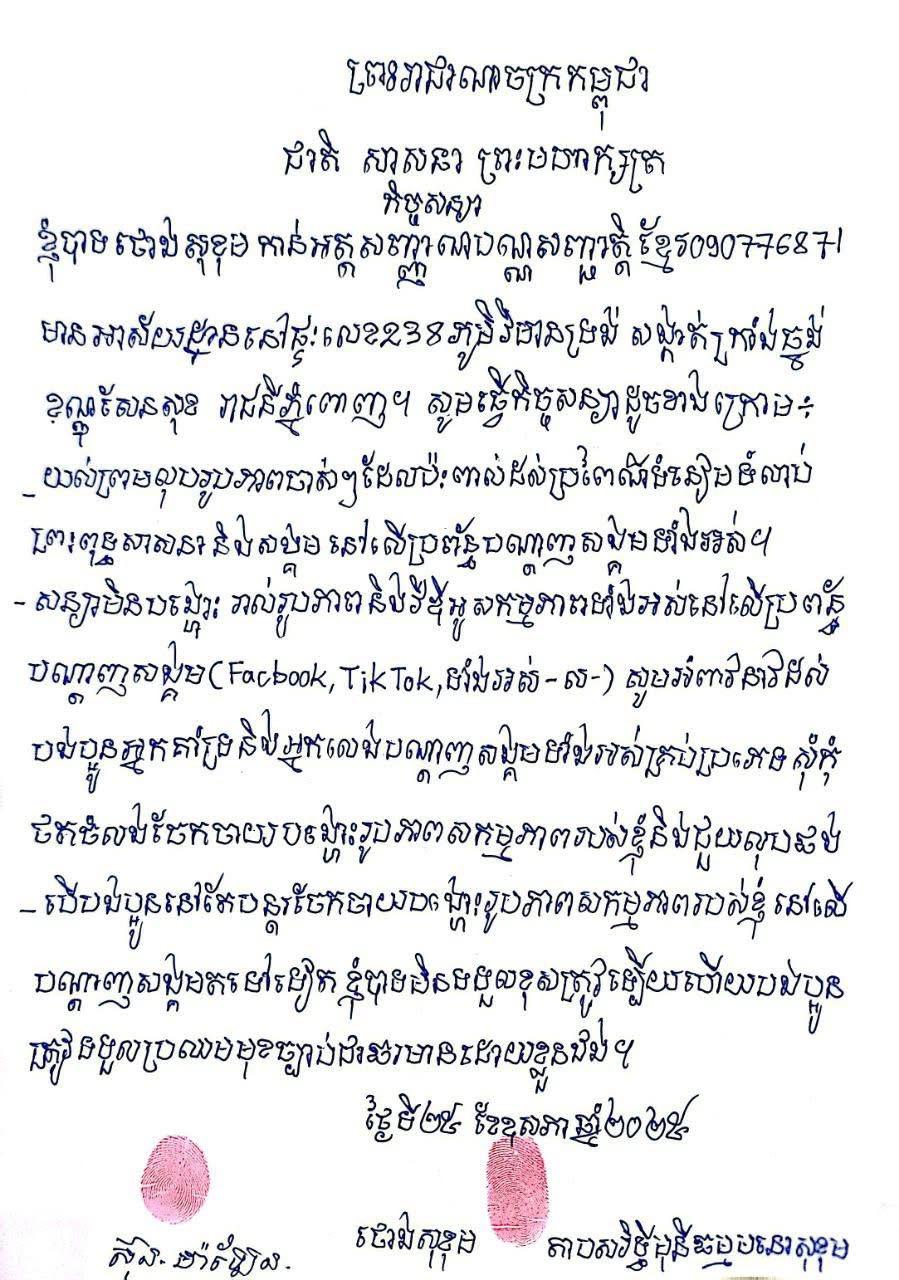 ព្រះរាជាណាចក្រកម្ពុជា
ជាតិ សាសនា ព្រះមហាក្សត្រ
កិច្ចសន្យា
ខ្ញុំបាទ ថោង សុខុម កាន់អត្តសញ្ញាណបណ្ណសញ្ជាតិខ្មែរ090776871
មានអាស័យដ្ឋាននៅផ្ទះលេខ238 ភូមិវិមានទ្រង់ សង្កាត់ក្រាំងធ្នង់
ខណ្ឌសែនសុខ រាជធនីភ្នំពេញ។ សូមធ្វើកិច្ចសន្យាដូចខាងក្រោម÷
_យល់ព្រមលុបរូបភាពចាស់ៗដែលប៉ះពាល់ដល់ប្រពៃណីទំនៀមទំលាប់
ព្រះពុទ្ធសាសនានិងសង្គម នៅលើប្រព័ន្ធបណ្ដាញសង្គមទាំងអស់។
-សន្យាមិនបង្ហោះ រាល់រូបភាពនិងវីឌីអូសកម្មភាពទាំងអស់នៅលើប្រព័ន្ធ
បណ្ដាញសង្គម(Facbook,TikTok,ទាំងអស់-ល-) សូមអំពាវនាវដល់
បងប្អូនអ្នកគាំទ្រនិងអ្នកលេងបណ្ដាញសង្គមទាំងអស់គ្រប់ប្រភេទ សុំកុំ
ថតចំលងចែកចាយបង្ហោះរូបភាពសកម្មភាពរបស់ខ្ញុំនិងជួយលុបផង
_បើបងប្អូននៅតែបន្តរចែកចាយបង្ហោះរូបភាពសកម្មភាពរបស់ខ្ញុំ នៅលើ
បណ្ដាញសង្គមតទៅទៀត ខ្ញុំបាទមិនទទួលខុសត្រូវឡើយហើយបងប្អូន
ត្រូវទទួលប្រឈមមុខច្បាប់ជាធរមានដោយខ្លួនឯង។
ថ្ងៃទី២៥ ខែឧសភា ឆ្នាំ២០២៥
ថោង សុខុម